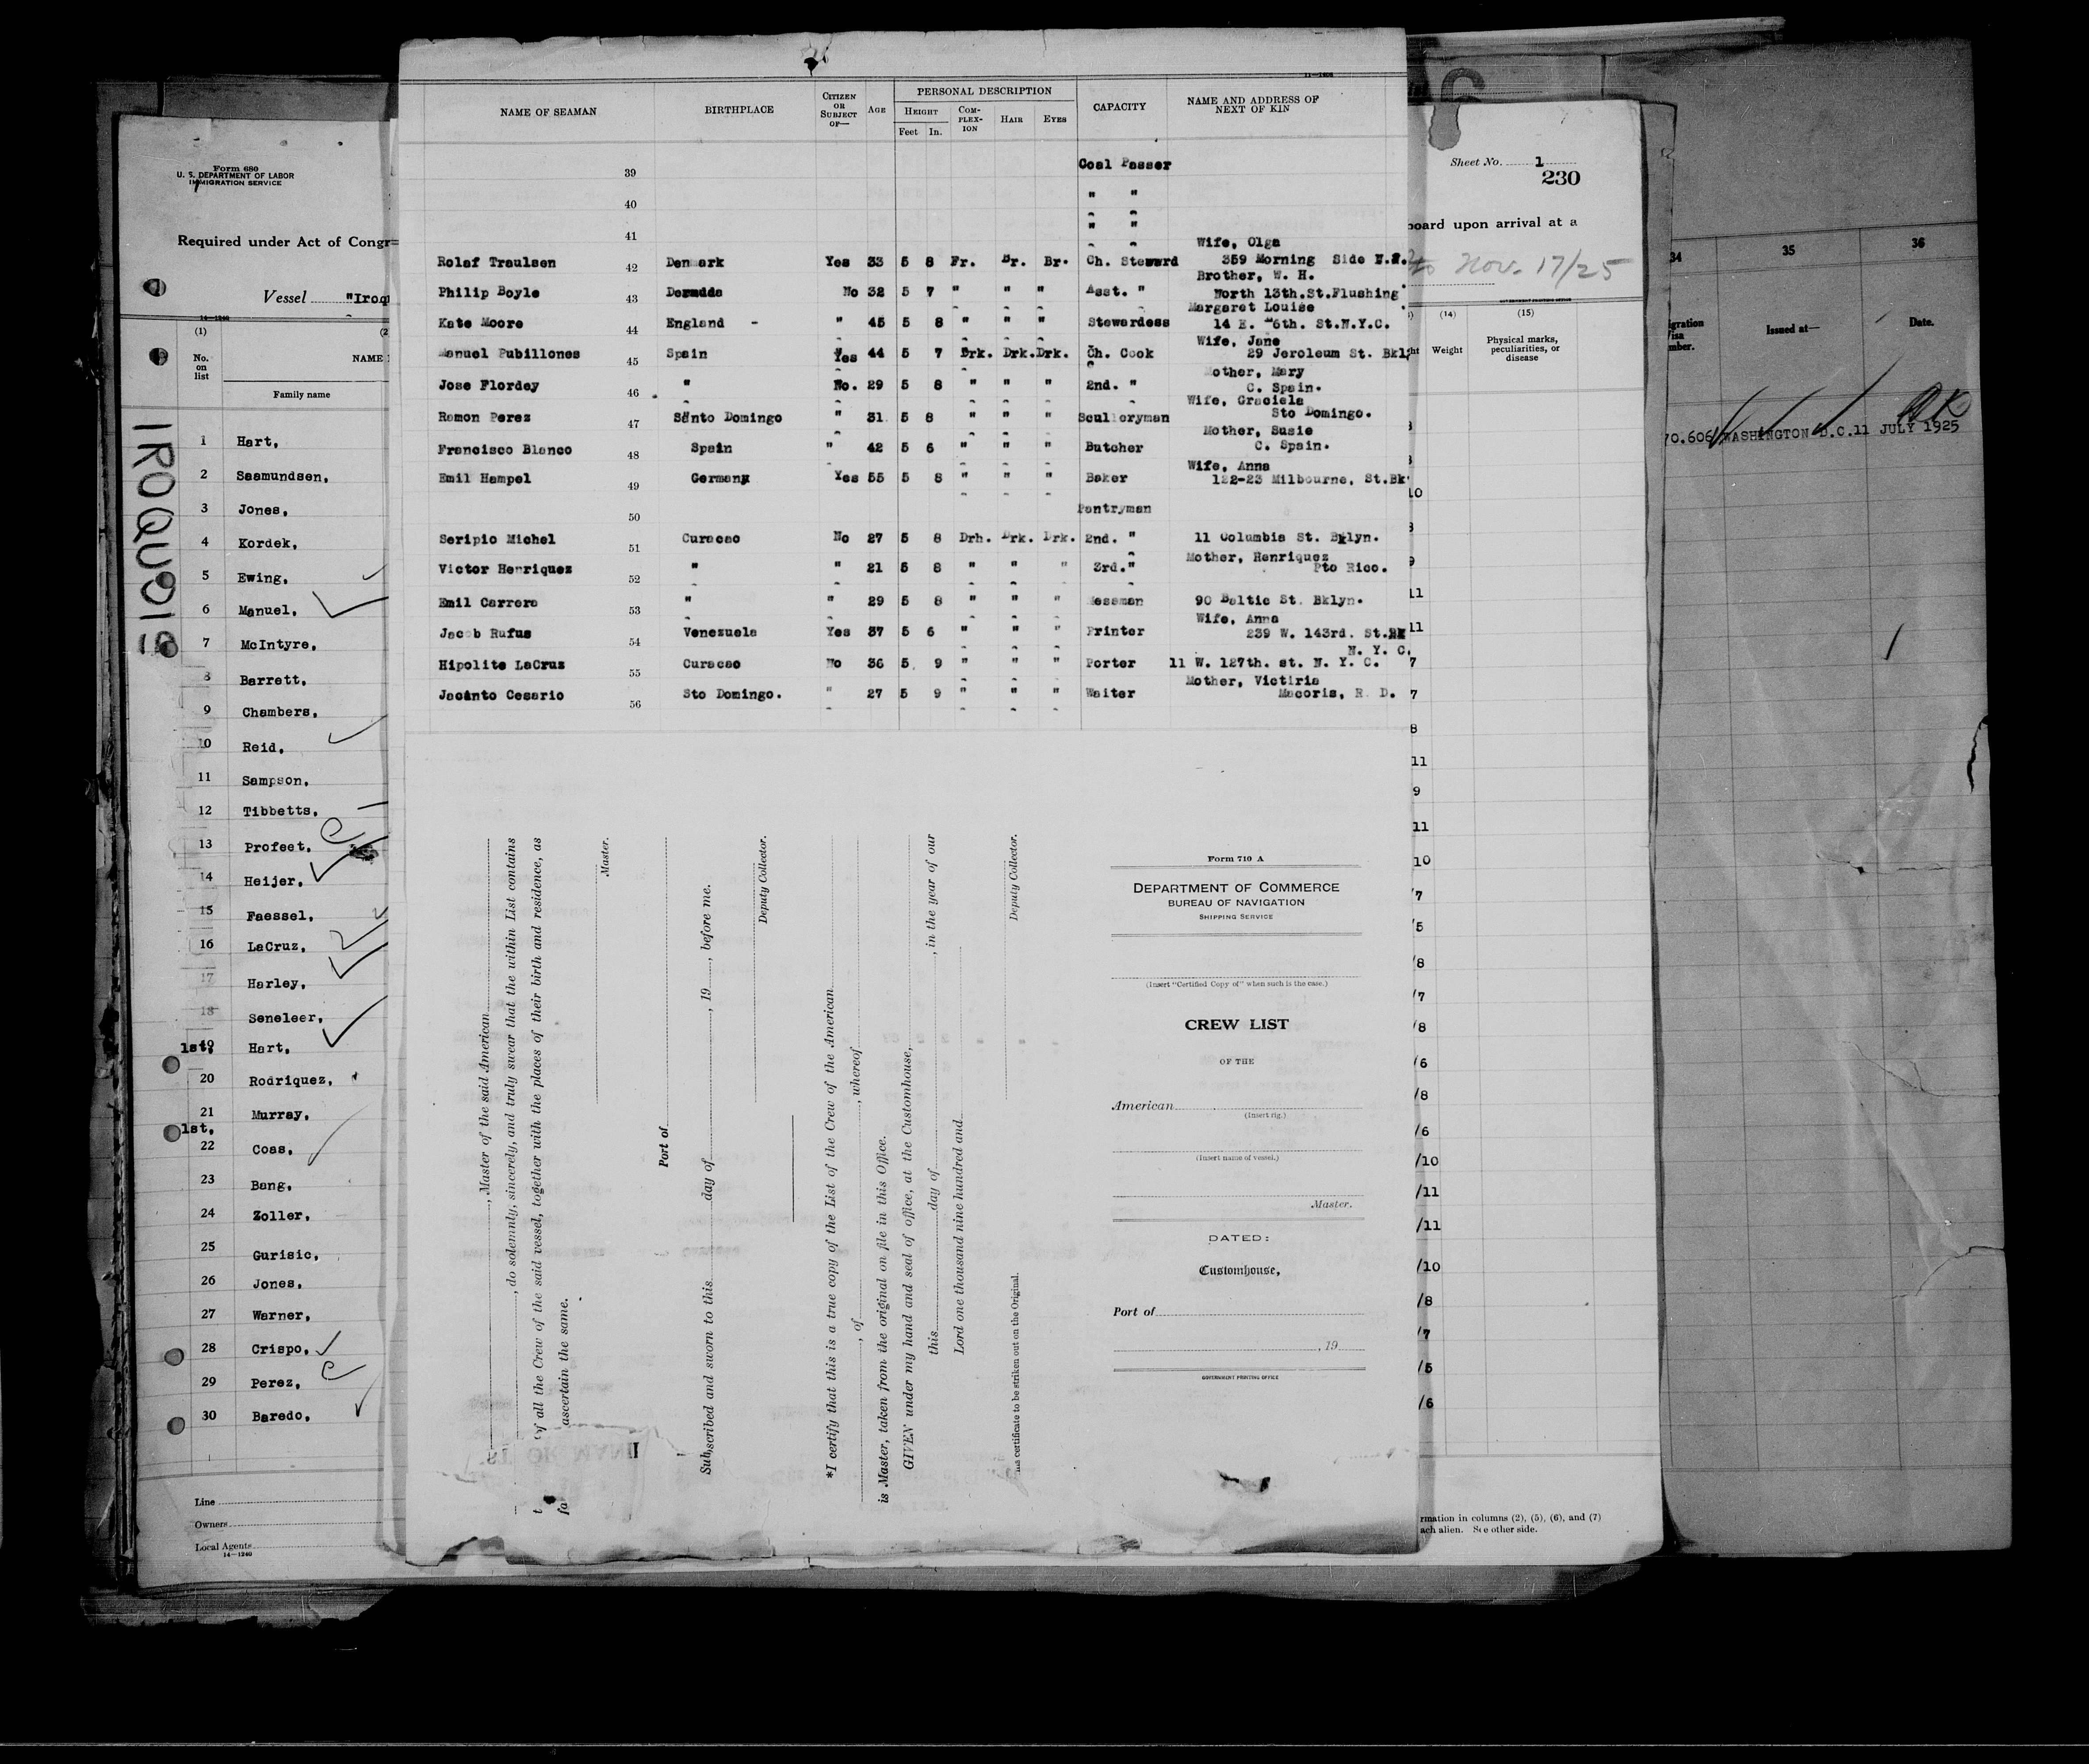 11—1406
NAME OF SEAMAN BIRTHPLACE CITIZEN OR SUBJECT OF— AGE PERSONAL DESCRIPTION CAPACITY NAME AND ADDRESS OF NEXT OF KIN
HEIGHT COMPLEXION HAIR EYES
Feet In.
39 Coal Passer
40 " "
41 " "
Wife, Olga
Rolaf Traulsen 42 Denmark Yes 33 5 8 Fr. Br. Br. Ch. Steward 359 Morning Side N.Y.
Brother, W. H.
Philip Boyle 43 No 32 5 7 " " " Asst. " North 13th.St.Flushing
Margaret Louise
Kate Moore 44 England - " 45 5 8 " " " Stewardess 14 E. 6th. St.N.Y.C.
Wife, Jane
Manuel Pubillones 45 Spain Yes 44 5 7 Drk. Drk. Drk. Ch. Cook 29 Jeroleum St. Bkl
Mother, Mary
Jose Flordey 46 " No. 29 5 8 " " " 2nd. " C. Spain.
Wife, Graciela
Ramon Perez 47 Santo Domingo " 31 5 8 " " " Sculleryman Sto Domingo.
Mother, Susie
Francisco Blanco 48 Spain " 42 5 6 " " " Butcher C. Spain.
Wife, Anna
Emil Hampel 49 Germany Yes 55 5 8 " " " Baker 122-23 Milbourne, St.Bk
50 Pantryman
Seripio Michel 51 Curacao No 27 5 8 Drh. Drk. Drk. 2nd. " 11 Columbia St. Bklyn.
Mother, Henriquez
Victor Henriquez 52 " " 21 5 8 " " " 3rd." Pto Rico.
Emil Carrera 53 " " 29 5 8 " " " Messman 90 Baltic St. Bklyn.
Wife, Anna
Jacob Rufus 54 Venezuela Yes 37 5 6 " " " Printer 239 W. 143rd. St.
N. Y. C.
Hipolite LaCruz 55 Curacao No 36 5 9 " " " Porter 11 W. 127th. st. N. Y. C.
Mother, Victiria
Jacinto Cesario 56 Sto Domingo. " 27 5 9 " " " Waiter Macoris, R. D.
, Master of the said American
, do solemnly, sincerely, and truly swear that the within List contains
of all the Crew of the said vessel, together with the places of their birth and residence, as
ascertain the same.
Master.
Port of
Subscribed and sworn to this day of , 19 , before me.
Deputy Collector.
*I certify that this is a true copy of the List of the Crew of the American
, of , whereof
is Master, taken from the original on file in this Office.
GIVEN under my hand and seal of office, at the Customhouse,
this day of , in the year of our
Lord one thousand nine hundred and
Deputy Collector.
certificate to be striken out on the Original.
Form 710 A
DEPARTMENT OF COMMERCE
BUREAU OF NAVIGATION
SHIPPING SERVICE
(Insert "Certified Copy of" when such is the case.)
CREW LIST
OF THE
American
(Insert rig.)
(Insert name of vessel.)
Master.
DATED:
Customhouse,
Port of
, 19
GOVERNMENT PRINTING OFFICE
Form 680
U. S. DEPARTMENT OF LABOR
IMMIGRATION SERVICE
Required under Act of Congr
Vessel "Iroq
14—1240
(1) (2
No. on list NAME
Family name
IROQUOIS
1 Hart,
2 Saamundsen,
3 Jones,
4 Kordek,
5 Ewing,
6 Manuel,
7 McIntyre,
8 Barrett,
9 Chambers,
10 Reid,
11 Sampson,
12 Tibbetts,
13 Profeet,
14 Heijer,
15 Faessel,
16 LaCruz,
17 Harley,
18 Seneleer,
1st, 19 Hart,
20 Rodriquez,
21 Murray,
1st,
22 Coas,
23 Bang,
24 Zoller,
25 Gurisic,
26 Jones,
27 Warner,
28 Crispo,
29 Perez,
30 Baredo,
Line
Owners
Local Agents
14—1240
Sheet No. 1
230
board upon arrival at a
Nov. 17/25
GOVERNMENT PRINTING OFFICE
(14) (15)
ht Weight Physical marks, peculiarities, or disease
3
3
10
3
9
11
11
7
7
8
11
9
11
10
/7
/5
/8
/7
/8
/6
/8
/6
/10
/11
/11
/10
/8
/7
/5
/6
rmation in columns (2), (5), (6), and (7)
ach alien. See other side.
34 35 36
gration isa mber. Issued at— Date.
OK
70.606 WASHINGTON D.C. 11 JULY 1925